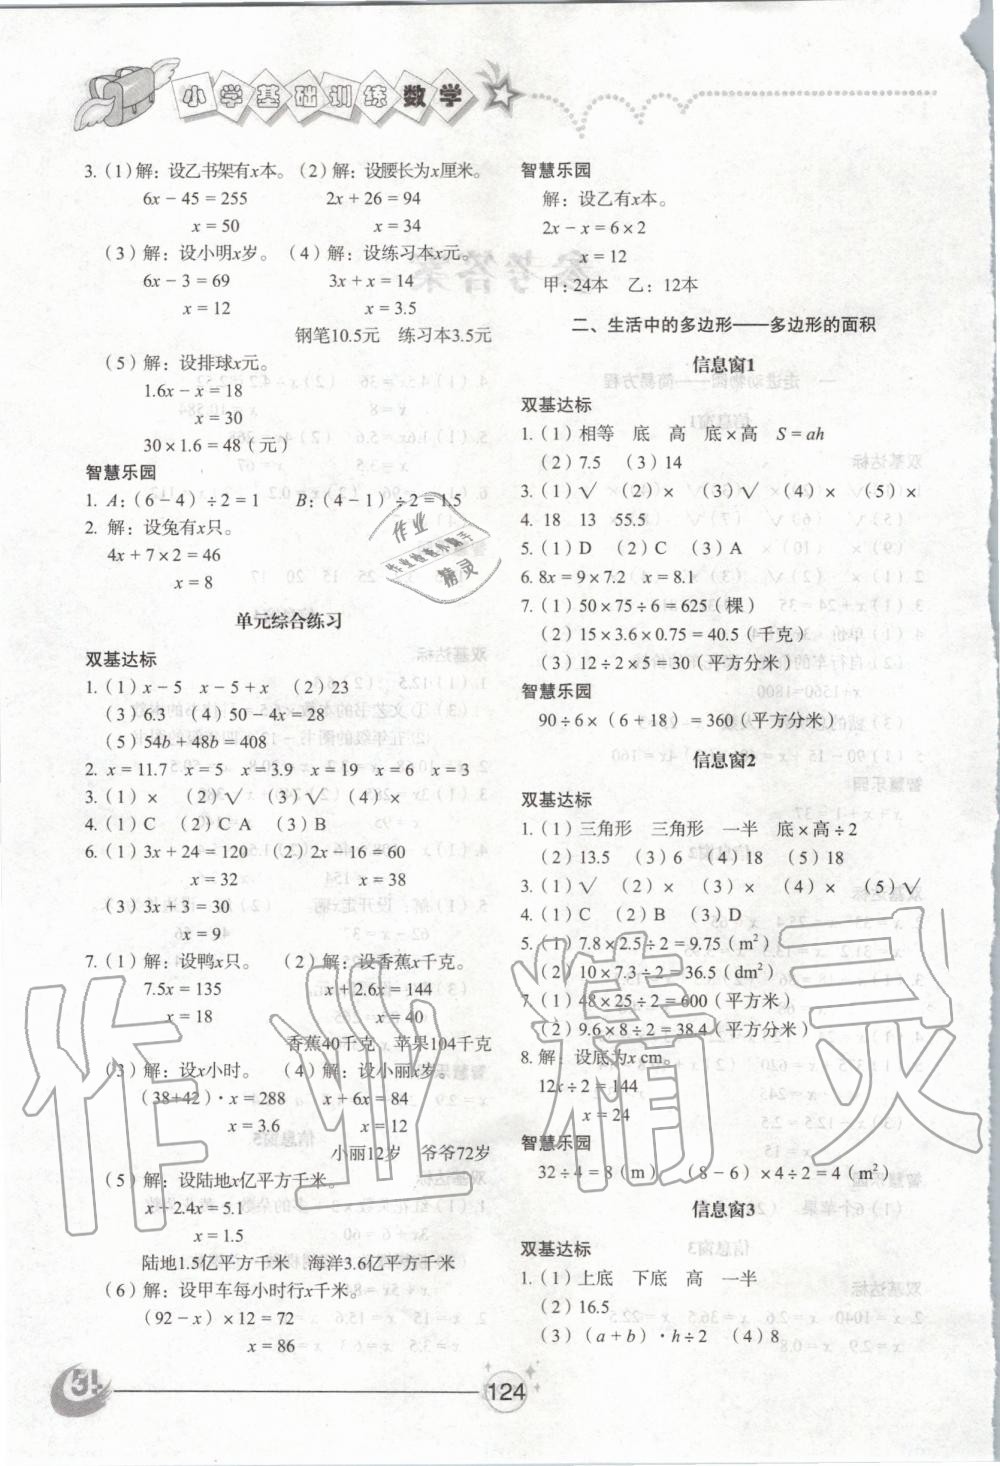 小学基础训练数学
3.（1）解：设乙书架有x本。（2）解：设腰长为x厘米。
6x－45＝255　2x＋26＝94
x＝50　x＝34
（3）解：设小明x岁。（4）解：设练习本x元。
6x－3＝69　3x＋x＝14
x＝12　x＝3.5
钢笔10.5元　练习本3.5元
（5）解：设排球x元。
1.6x－x＝18
x＝30
30×1.6＝48（元）
智慧乐园
1. A：（6－4）÷2＝1　B：（4－1）÷2＝1.5
2. 解：设兔有x只。
4x＋7×2＝46
x＝8
单元综合练习
双基达标
1.（1）x－5　x－5＋x　（2）23
（3）6.3　（4）50－4x＝28
（5）54b＋48b＝408
2. x＝11.7　x＝5　x＝3.9　x＝19　x＝6　x＝3
3.（1）×　（2）√　（3）√　（4）×
4.（1）C　（2）C A　（3）B
6.（1）3x＋24＝120　（2）2x－16＝60
x＝32　x＝38
（3）3x＋3＝30
x＝9
7.（1）解：设鸭x只。（2）解：设香蕉x千克。
7.5x＝135　x＋2.6x＝144
x＝18　x＝40
香蕉40千克　苹果104千克
（3）解：设x小时。（4）解：设小丽x岁。
（38+42）·x＝288　x＋6x＝84
x＝3.6　x＝12
小丽12岁　爷爷72岁
（5）解：设陆地x亿平方千米。
x＋2.4x＝5.1
x＝1.5
陆地1.5亿平方千米　海洋3.6亿平方千米
（6）解：设甲车每小时行x千米。
（92－x）×12＝72
x＝86
智慧乐园
解：设乙有x本。
2x－x＝6×2
x＝12
甲：24本　乙：12本
二、生活中的多边形——多边形的面积
信息窗1
双基达标
1.（1）相等　底　高　底×高　S＝ah
（2）7.5　（3）14
3.（1）√　（2）×　（3）√　（4）×　（5）×
4. 18　13　55.5
5.（1）D　（2）C　（3）A
6. 8x＝9×7.2　x＝8.1
7.（1）50×75÷6＝625（棵）
（2）15×3.6×0.75＝40.5（千克）
（3）12÷2×5＝30（平方分米）
智慧乐园
90÷6×（6＋18）＝360（平方分米）
信息窗2
双基达标
1.（1）三角形　三角形　一半　底×高÷2
（2）13.5　（3）6　（4）18　（5）18
3.（1）√　（2）×　（3）×　（4）×　（5）√
4.（1）C　（2）B　（3）D
5.（1）7.8×2.5÷2＝9.75（m²）
（2）10×7.3÷2＝36.5（dm²）
7.（1）48×25÷2＝600（平方米）
（2）9.6×8÷2＝38.4（平方米）
8. 解：设底为x cm。
12x÷2＝144
x＝24
智慧乐园
32÷4＝8（m）　（8－6）×4÷2＝4（m²）
信息窗3
双基达标
1.（1）上底　下底　高　一半
（2）16.5
（3）（a＋b）·h÷2　（4）8
124
作业
作业检查小助手
精灵
作业精灵